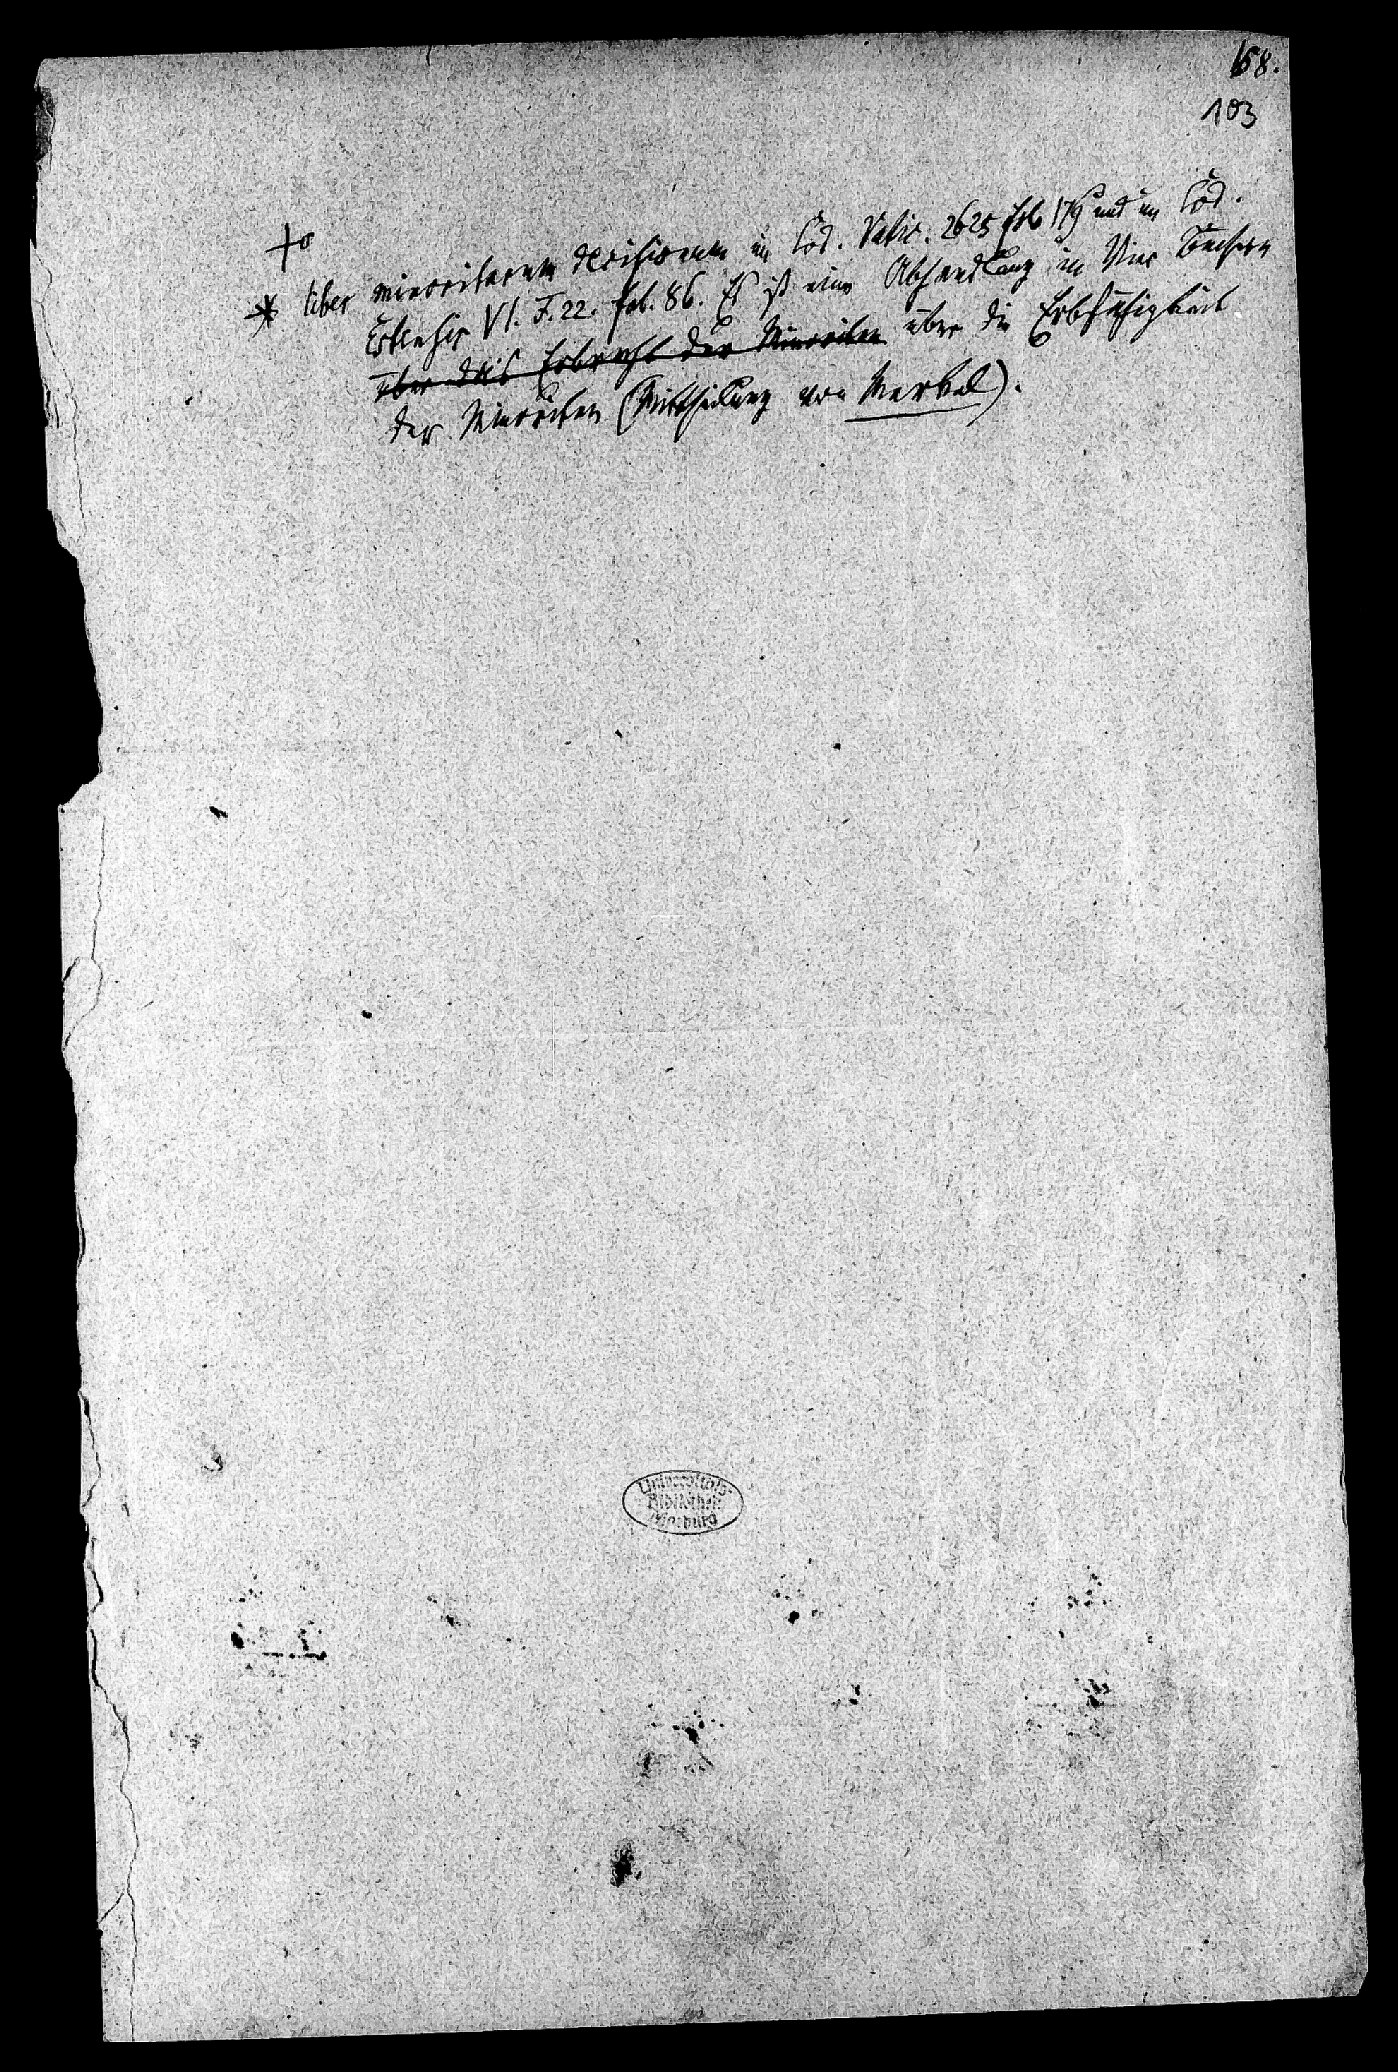 168.
103
+o
* Liber minoritarum decisionum in Cod. Vatic. 2625 fol. 179 und in Cod.
Estensis VI. F. 22. fol. 86. Es ist eine Abhandlung in Vier Büchern
über das Erbrecht der Minoriten über die Erbfähigkeit
der Minoriten (Mittheilung von Merkel).
Universitäts-
Bibliothek
Marburg